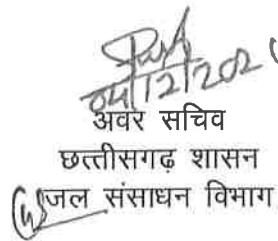 04/12/202
अवर सचिव
छत्तीसगढ़ शासन
जल संसाधन विभाग